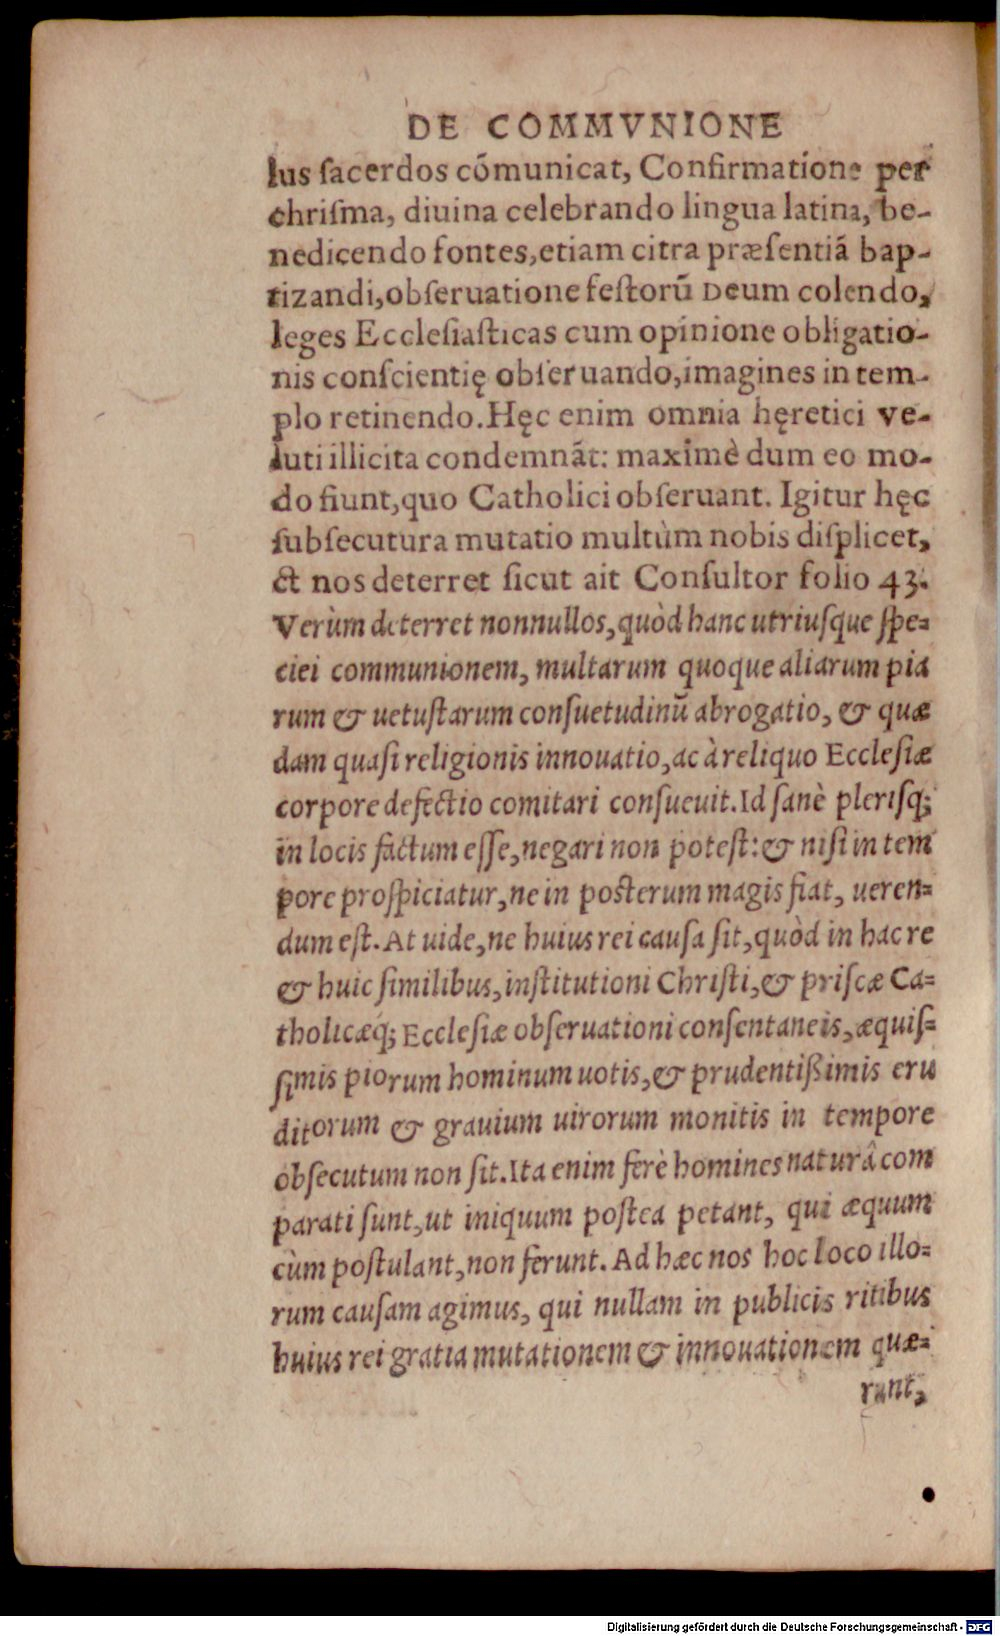 DE COMMVNIONE
lus ſacerdos cōmunicat, Confirmatione per
chriſma, diuina celebrando lingua latina, be-
nedicendo fontes, etiam citra præſentiā bap-
tizandi, obſeruatione feſtorū Deum colendo,
leges Eccleſiaſticas cum opinione obligatio-
nis conſcientię obſeruando, imagines in tem-
plo retinendo. Hęc enim omnia hęretici ve-
luti illicita condemnāt: maximè dum eo mo-
do fiunt, quo Catholici obſeruant. Igitur hęc
ſubſecutura mutatio multùm nobis diſplicet,
et nos deterret ſicut ait Conſultor folio 43.
Verùm deterret nonnullos, quòd hanc utriuſque ſpe=
ciei communionem, multarum quoque aliarum pia
rum & uetuſtarum conſuetudinū abrogatio, & quæ
dam quaſi religionis innouatio, ac à reliquo Eccleſiæ
corpore defectio comitari conſueuit. Id ſanè pleriſq;
in locis factum eſſe, negari non poteſt: & niſi in tem
pore proſpiciatur, ne in poſterum magis fiat, ueren=
dum eſt. At uide, ne huius rei cauſa ſit, quòd in hac re
& huic ſimilibus, inſtitutioni Chriſti, & priſcæ Ca=
tholicæq́; Eccleſiæ obſeruationi conſentaneis, æquiſ=
ſimis piorum hominum uotis, & prudentißimis eru
ditorum & grauium uirorum monitis in tempore
obſecutum non ſit. Ita enim ferè homines naturâ com
parati ſunt, ut iniquum poſtea petant, qui æquum
cùm poſtulant, non ferunt. Ad hæc nos hoc loco illo=
rum cauſam agimus, qui nullam in publicis ritibus
huius rei gratia mutationem & innouationem quæ=
rant,
Digitalisierung gefördert durch die Deutsche Forschungsgemeinschaft - DFG